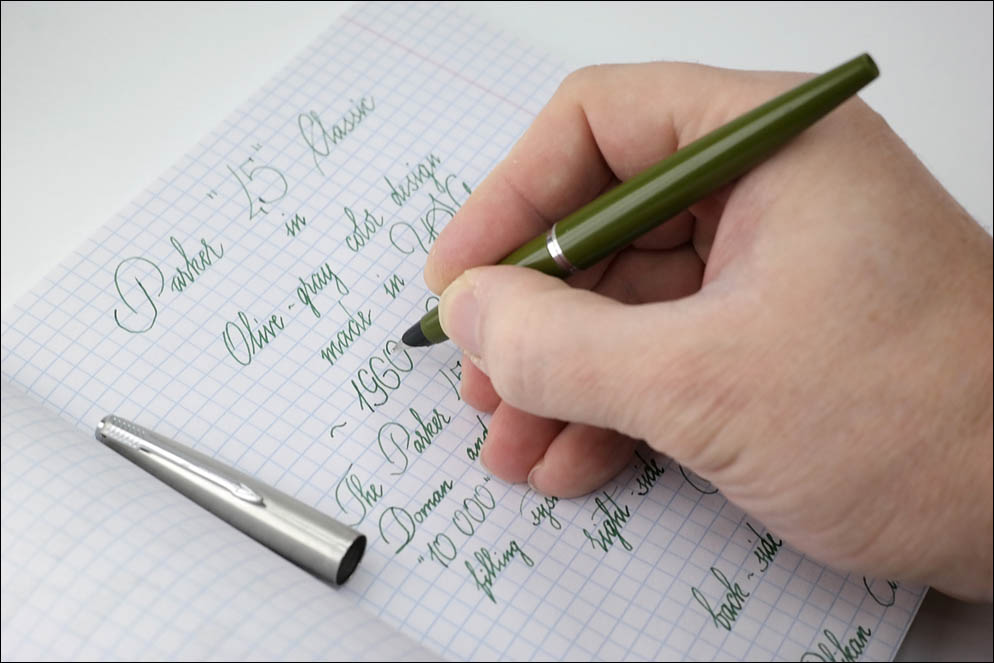 Parker "45" Classic
Olive-gray in color design
made in
~ 1960
The Parker
Doman and
"10 000"
filling sys
right-side
back-side